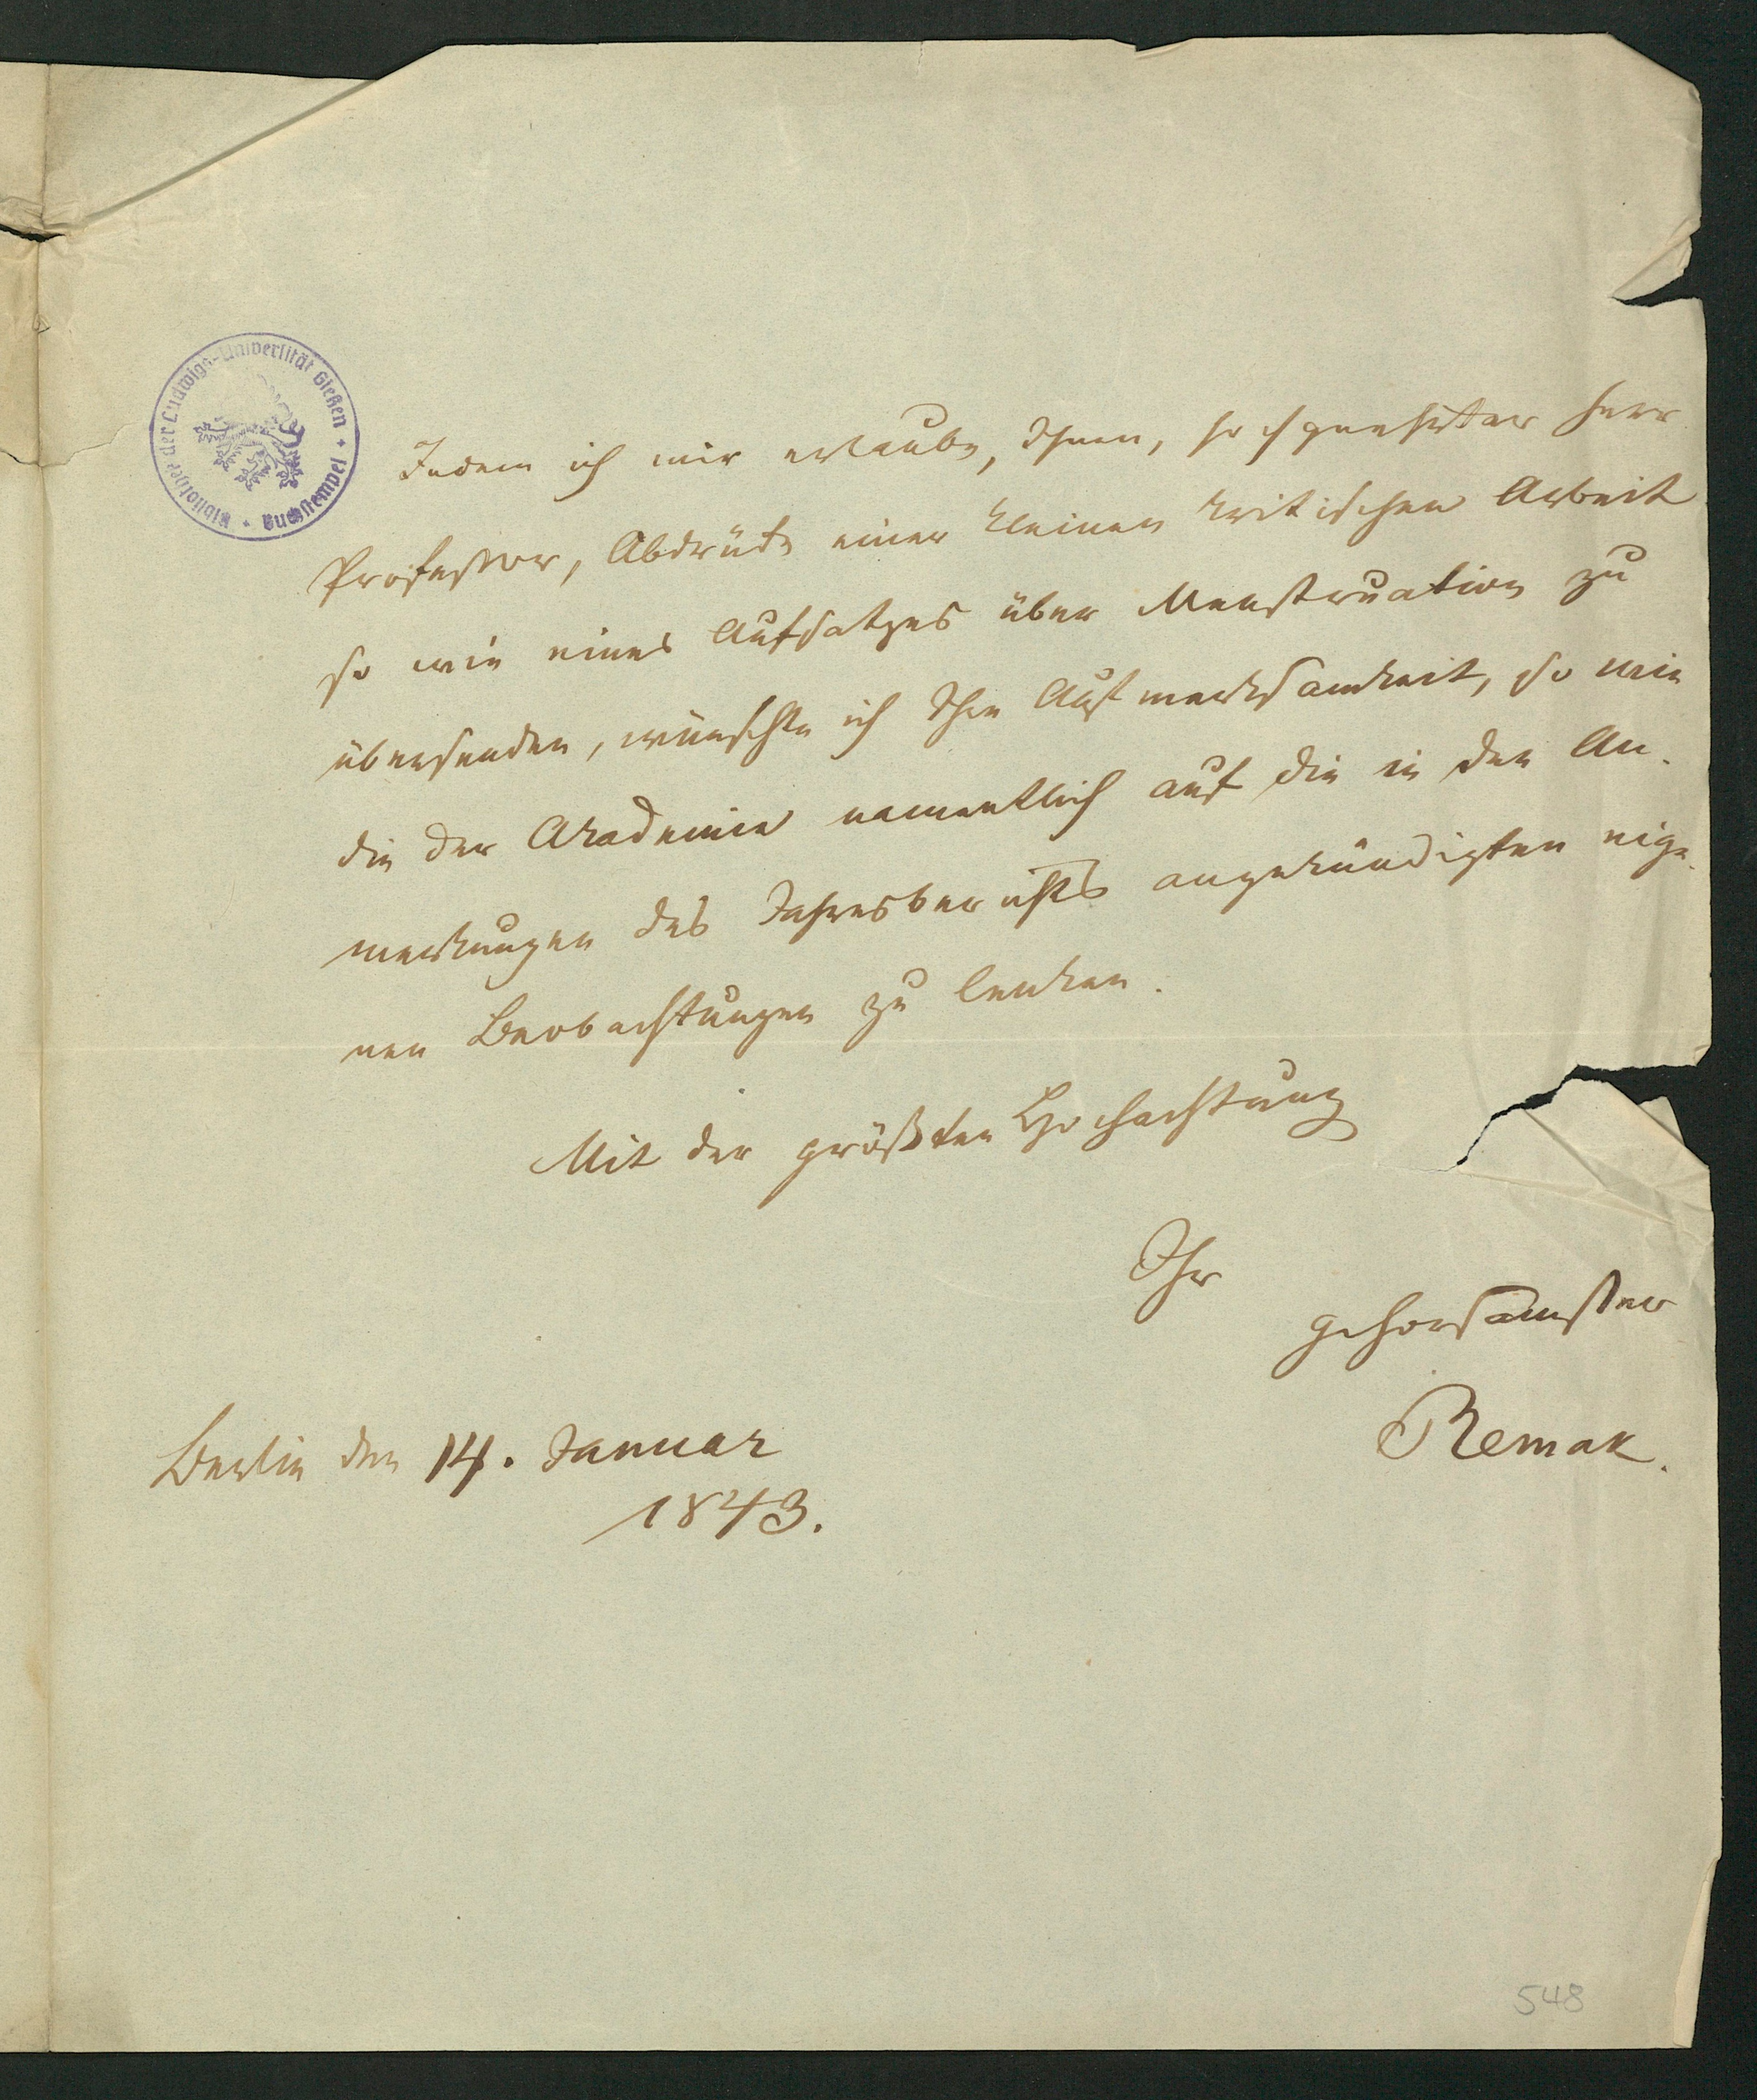 Bibliothek der Ludwigs-Universität Gießen + Buchstempel +
Indem ich mir erlaube, Ihnen, hochgeehrter Herr
Professor, Abdrücke einer kleinen kritischen Arbeit
so wie eines Aufsatzes über Menstruation zu
übersenden, wünschte ich Ihre Aufmerksamkeit, so wie
die der Akademie namentlich auf die in den An-
merkungen des Jahresberichts angekündigten eige-
nen Beobachtungen zu lenken.
Mit der größten Hochachtung
Ihr
gehorsamster
Remak.
Berlin den 14. Januar
1843.
548